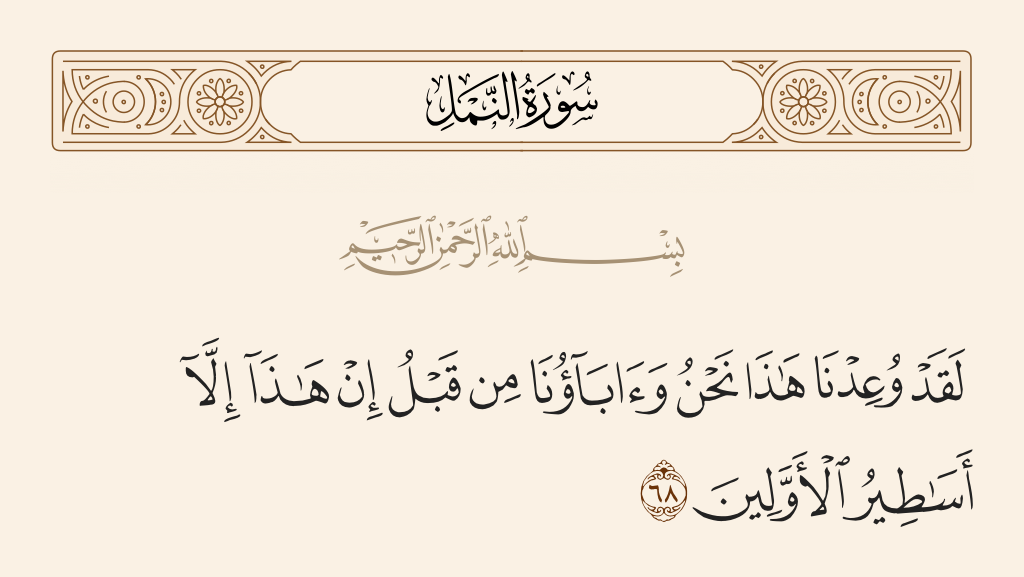 سُورَةُ النَّمۡلِ
بِسۡمِ ٱللَّهِ ٱلرَّحۡمَٰنِ ٱلرَّحِيمِ
لَقَدۡ وُعِدۡنَا هَٰذَا نَحۡنُ وَءَابَآؤُنَا مِن قَبۡلُ إِنۡ هَٰذَآ إِلَّآ
أَسَٰطِيرُ ٱلۡأَوَّلِينَ ٦٨